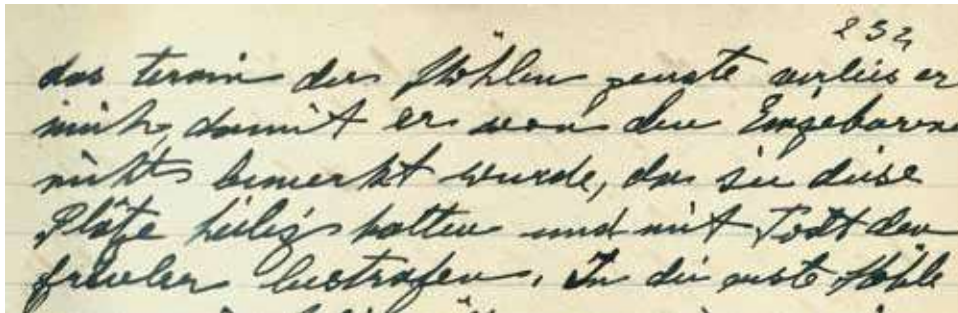 232
das terain der Höhlen zeigte verlies er
mich, damit er von den Eingeborene
nicht bemerkt wurde, da sie diese
Plätze heilig hatten und mit Todt den
frevler bestrafen. In die erste Höhle